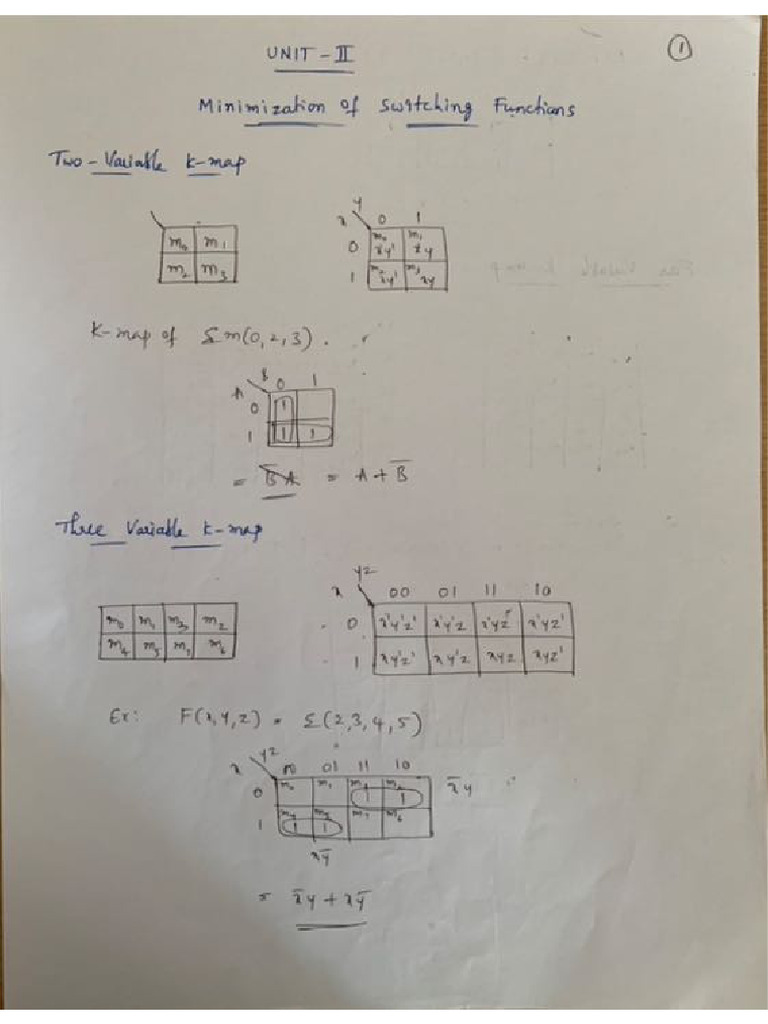 ①
UNIT - II
Minimization of Switching Functions
Two-Variable K-map
m0 m1
m2 m3
y
x 0 1
0 m0 x̄y' m1 x̄y
1 m2 xy' m3 xy
K-map of Σm(0,2,3).
B
A 0 1
0 1
1 1 1
= A + B̄
Three Variable K-map
m0 m1 m3 m2
m4 m5 m7 m6
yz
x 00 01 11 10
0 x'y'z' x'y'z x'yz x'yz'
1 xy'z' xy'z xyz xyz'
Ex: F(x,y,z) = Σ(2,3,4,5)
yz
x 00 01 11 10
0 m0 m1 m3 1 m2 1 x̄y
1 m4 1 m5 1 m7 m6
xȳ
= x̄y + xȳ